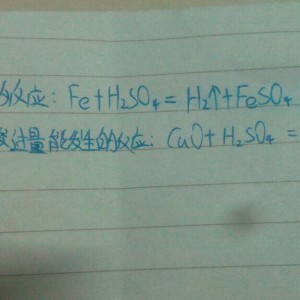 的反应: Fe+H₂SO₄=H₂↑+FeSO₄
过量能发生的反应: CuO+H₂SO₄=